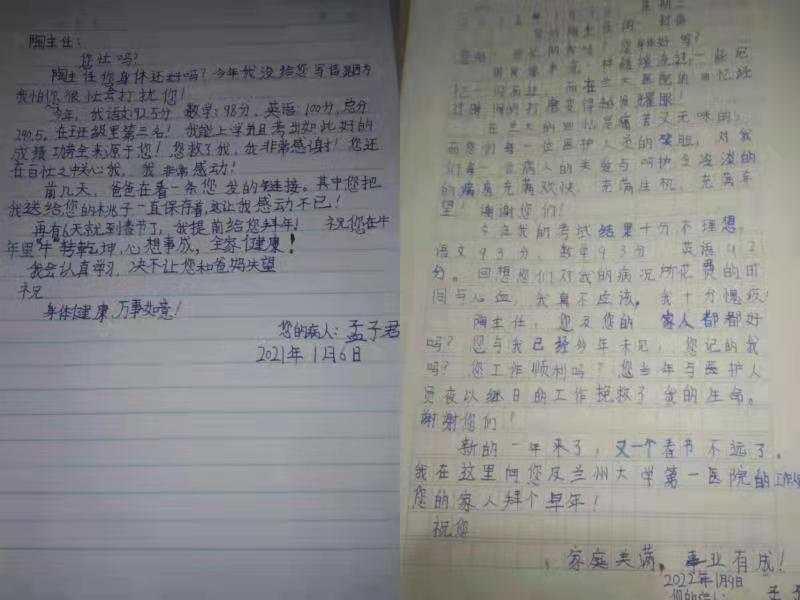 陶主任:
您忙吗?
陶主任您身体还好吗?今年我没给您写信是因为
我怕你很忙着打扰您!
今年,我语文92.5分 数学:98分,英语:100分,总分
290.5,在班级里第三名!我能上学并且考出如此好的
成绩功劳全来原于您!您救了我,我非常感谢!您还
在百忙之中关心我,我非常感动!
前几天,爸爸在看一条您发的链接。其中您把
我送给您的桃子一直保存着,这让我感动不已!
再有6天就到春节了,我提前给您拜年! 祝您在牛
年里"牛"转乾坤,心想事成,全家健康!
我会认真学习,决不让您和爸妈失望
祝
身体健康,万事如意!
您的病人:孟子君
2021年1月6日
星期二
您身体好吗?
而在兰大医院的回忆经
过时间的打磨变得越发耀眼!
在兰大的回忆是痛苦又无味的,
而您们每一位医护人员的笑脸,对我
们每一位病人的关爱与呵护令凌凌的
的病房充满欢快,充满生机,充满希
望!谢谢您们!
今年我的考试结果十分不理想,
语文93分,数学93分 英语92
分。回想您们对我的病况所花费的时
间与心血,我真不应该,我十分愧疚!
陶主任,您及您的家人都都好
吗?您与我已经多年未见,您记的我
吗?您工作顺利吗?您当年与医护人
员夜以继日的工作挽救了我的生命。
谢谢您们!
新的一年来了,又一个春节不远了。
我在这里向您及兰州大学第一医院的工作人
您的家人拜个早年!
祝您
家庭美满,事业有成!
2022年1月9日
您的病人:孟